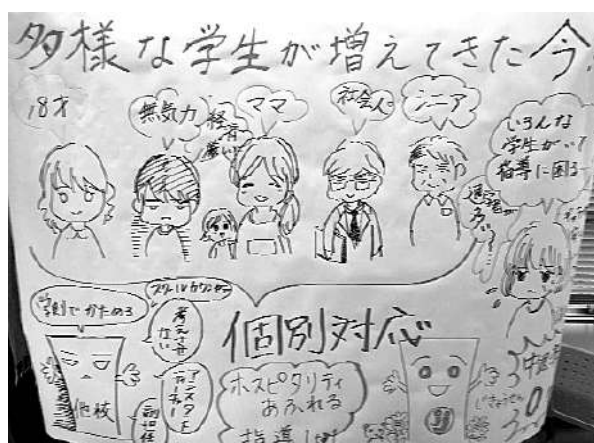 多様な学生が増えてきた今
18才
無気力
経済
厳しい
ママ
社会人
シニア
いろんな
学生がいて
指導に困る
学則でかためる
スクールカウンセラー
考えさせ
ない
アシスタント
ティーチャー
副担任
他校
個別対応
ホスピタリティ
あふれる
指導
中退
30